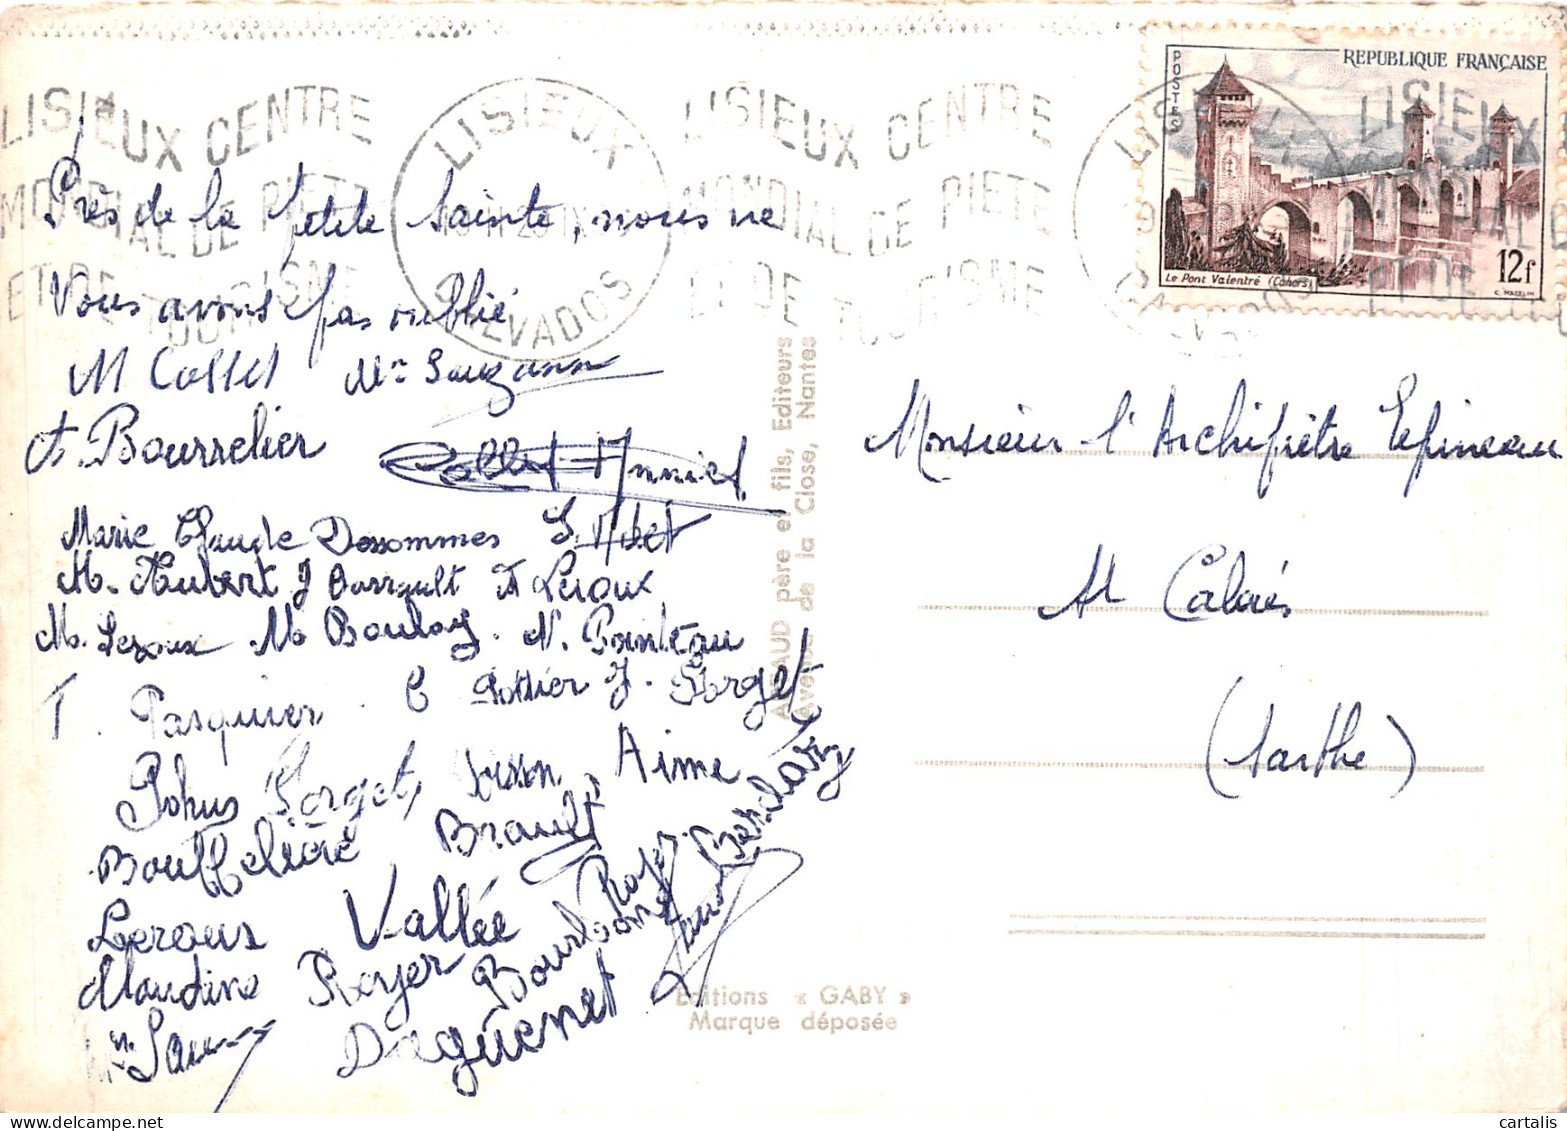 LISIEUX CENTRE
MONDIAL DE PIETE
ET DE TOURISME
LISIEUX
CALVADOS
LISIEUX CENTRE
MONDIAL DE PIETE
ET DE TOURISME
POSTES
REPUBLIQUE FRANÇAISE
Le Pont Valentré (Cahors)
12f
C. MAZELIN
Près de la petite Sainte, nous ne
Vous avons pas oublié
M Collet Mr Sauzann
A. Bourrelier Collet Annick
Marie Claude Dessommes
M. Hubert J Barrault A Leroux
M. Leroux M Boulay. N. Pointeau
T. Pasquier. C Pottier J. Forget
Forget, Aime
Bouffelière Brault
Leroux Vallée
Claudine Royer Bourbond Royer
Daguenet
Monsieur l'Archiprêtre Epineau
St Calais
(Sarthe)
ARTAUD père et fils, Editeurs
Avenue de la Close, Nantes
Editions « GABY »
Marque déposée
cartalis